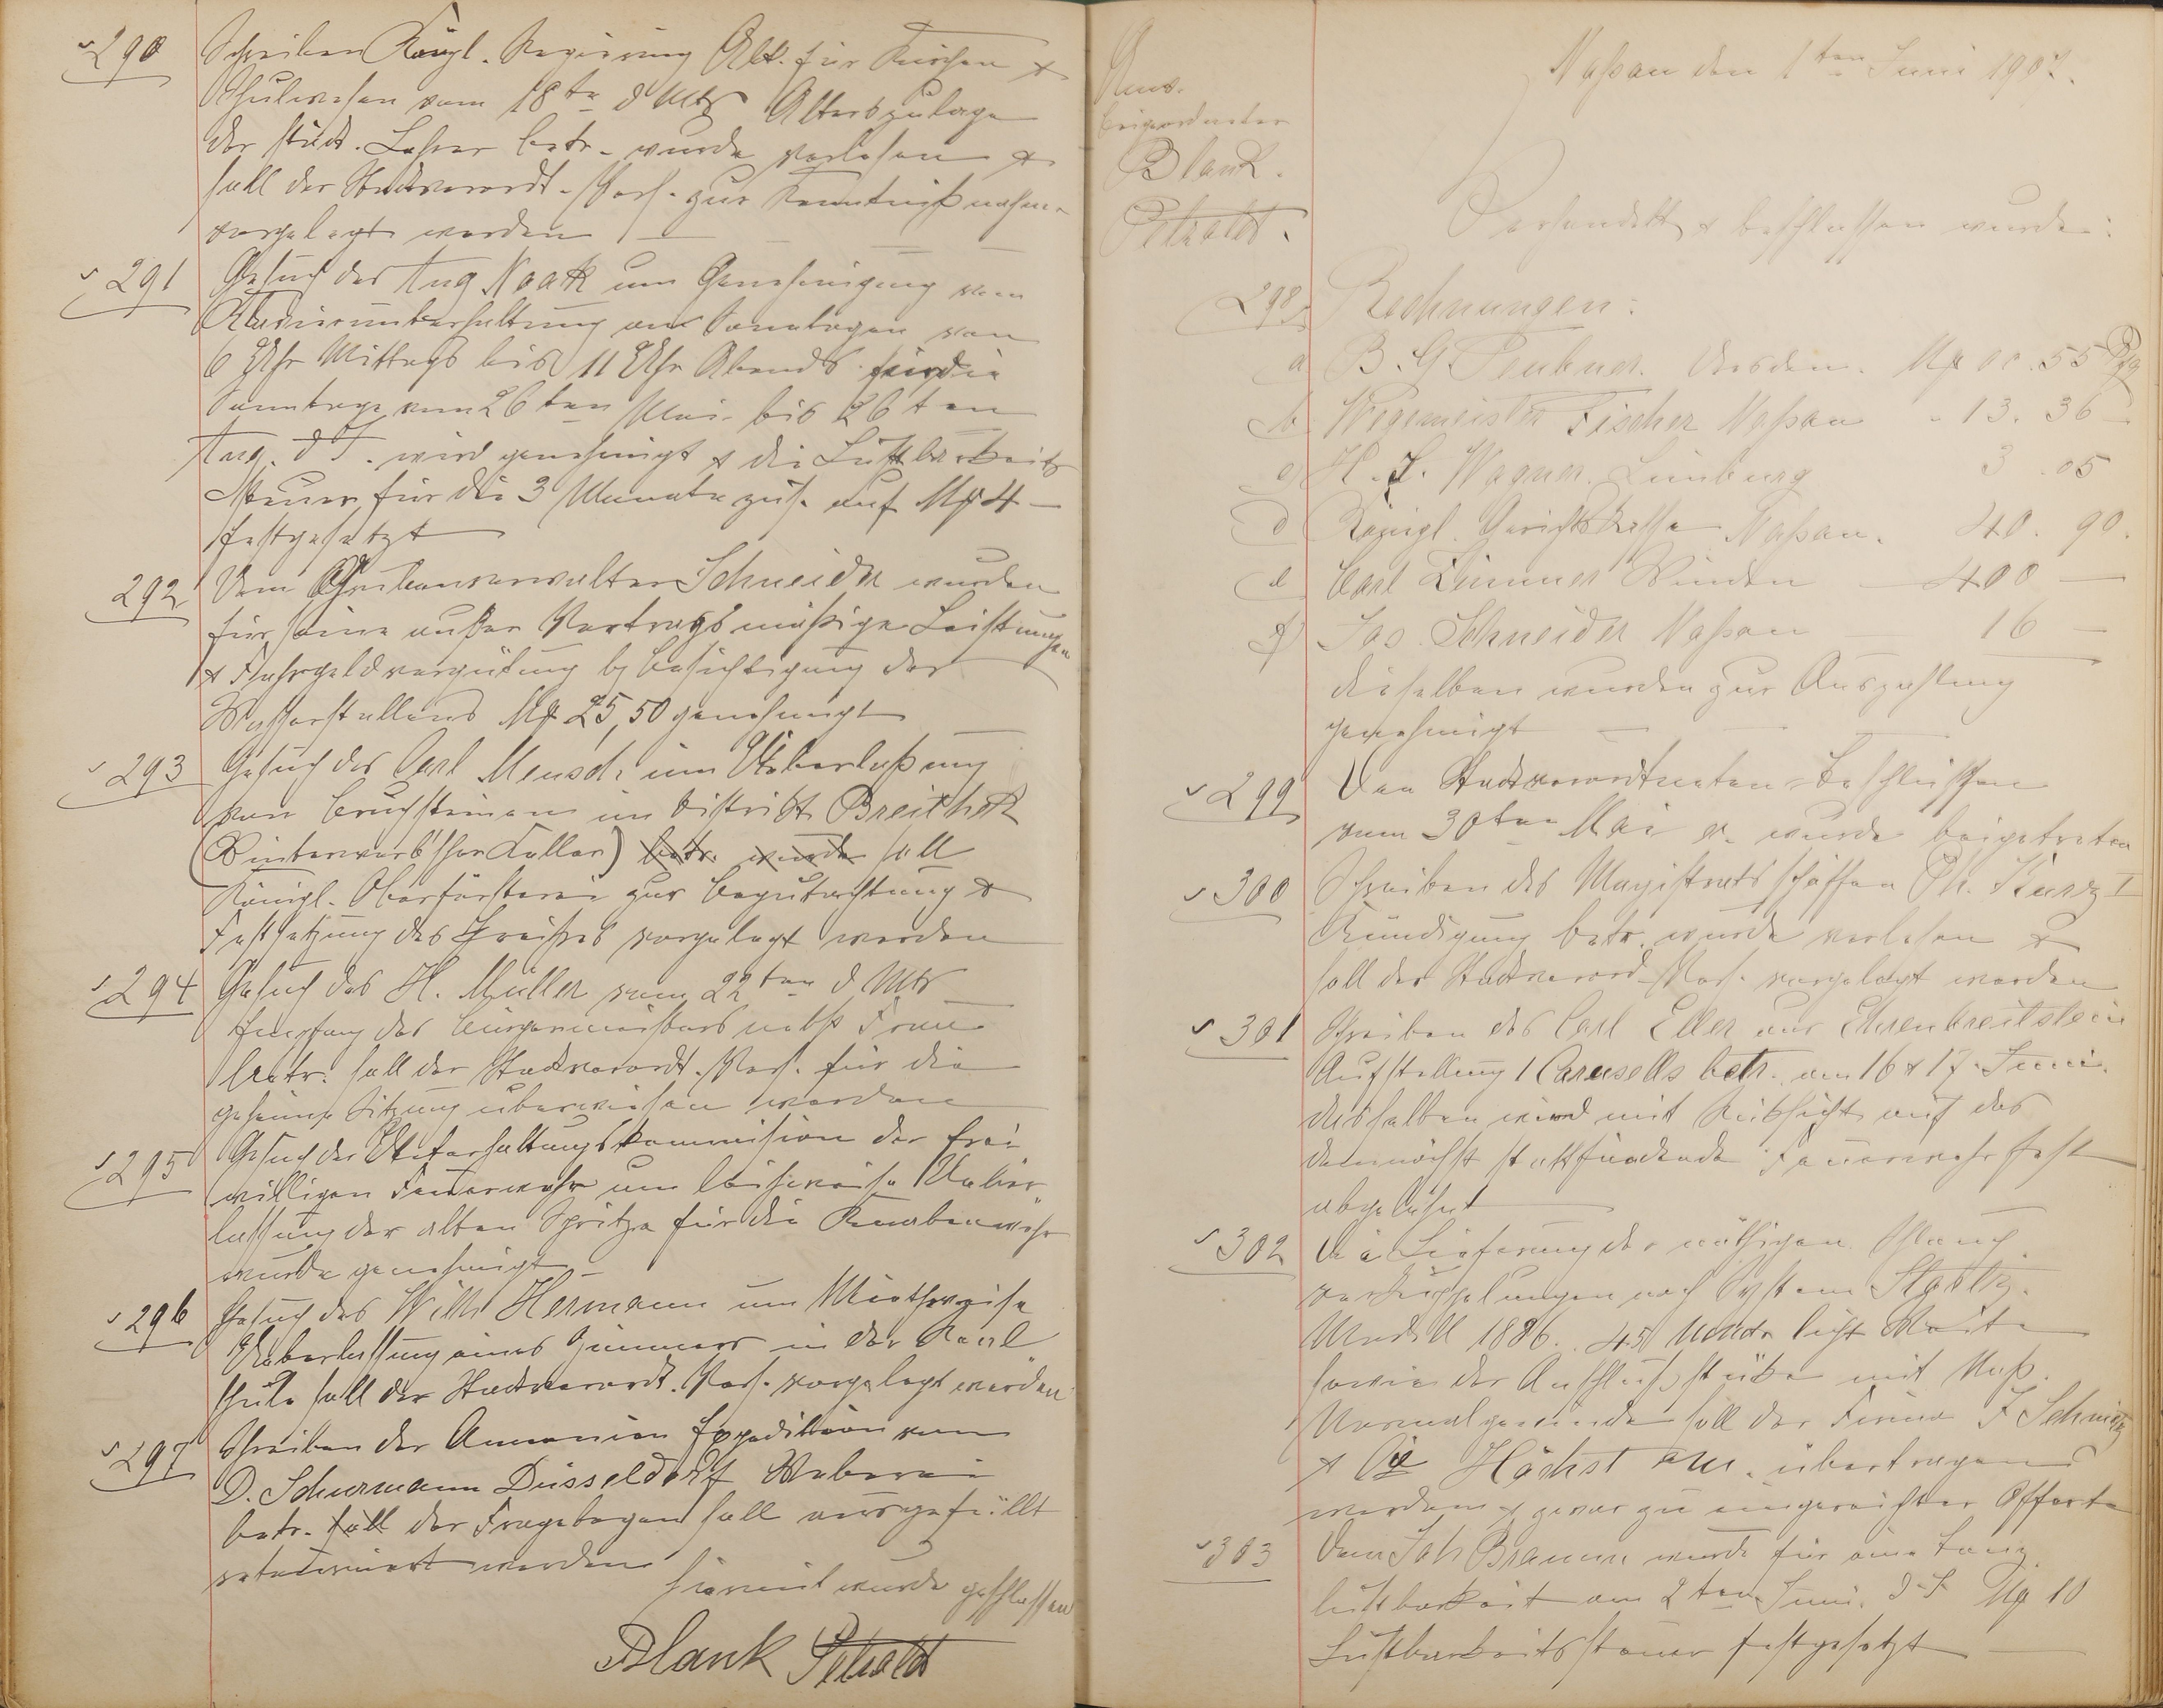 290 Schreiben Königl. Regierung Abt. für Kirchen &
Schulwesen vom 18ten d Mts Alterszulage
der städt. Lehrer betr. wurde verlesen &
soll der Stadtverordt.-Vers. zur Kenntnißnahme
vorgelegt werden
291 Gesuch des Aug Noack um Genehmigung von
Klavierunterhaltung an Sonntagen von
6 Uhr Mittags bis 11 Uhr Abends für die
Sonntage vom 26ten Mai bis 26ten
Aug. d J. wird genehmigt & die Lustbarkeits
Steuer für die 3 Monate zus. auf Mk 4 —
festgesetzt
292 Dem Grubenverwalter Schneider wurden
für seine außer Vertragsmäßige Leistungen
& Fuhrgeldvergütung b/ Besichtigung des
Wasserstollens Mk 25,50 genehmigt
293 Gesuch des Carl Mensch um Ueberlaßung
von Bruchsteinen im Distrikt Breitheck
betr. wurde soll
Königl. Oberförsterei zur Begutachtung &
Festsetzung des Preises vorgelegt werden
294 Gesuch des H. Müller vom 22ten d Mts
des Bürgermeisters nebst Frau
betr. soll der Stadtverordt.-Vers. für die
geheime Sitzung überwiesen werden
295 Gesuch der Unterhaltungskommission der frei
willigen Feuerwehr um leihweise Ueber„
lassung der alten Spritze für die Knabenwehr
wurde genehmigt
296 Gesuch des Wilh Hermann um Miethweise
Ueberlassung eines Zimmers in der Real
schule soll der Stadtverordt.-Vers. vorgelegt werden
297 Schreiben der Annoncen Expedition von
D. Schürmann Düsseldorf Weberei
betr. soll der Fragebogen soll ausgefüllt
retourniert werden
hiermit wurde geschlossen
Blank Petzoldt
Naßau den 1ten Juni 1907.
Anw.
Beigeordneter
Blank.
Petzoldt.
Verhandelt & beschlossen wurde:
298 Rechnungen:
a B. G. Teubner. Dresden. Mk 00.55 Pfg
b Wegemeister Fischer Naßau „ 13. 36
c H. L. Wagner. Limburg 3.05
d Königl. Gerichtskasse Naßau. 40. 90.
e Carl Zimmer Winden — 400 —
f Jos. Schneider Naßau — 16 —
dieselben wurden zur Auszahlung
genehmigt
299 Den Stadtverordneten-Beschlüssen
vom 30ten Mai cr. wurde beigetreten
300 Schreiben des Magistratsschöffen Ph. Kurz I
Kündigung betr. wurde verlesen &
soll der Stadtverord-Vers. vorgelegt werden
301 Schreiben des Carl Eller aus Ehrenbreitstein
Aufstellung 1 Carusells betr. am 16 & 17. Juni.
derselben wird mit Rücksicht auf das
demnächst stattfindende Feuerwehrfest
abgelehnt
302 Die Lieferung der nöthigen Schlauch
verkuppelungen nach System Storz.
Modell 1886. 45 licht Weite
sowie der Anschlußstücke mit Naß.
Normalgewinde soll der Firma F Schmitz
& Cie Höchst a/M. übertragen
werden & zwar zu eingereichter Offerte
303 Dem Joh Braun wurde für eine Tanz
lustbarkeit am 2ten Juni. d J. Mk 10
Lustbarkeitssteuer festgesetzt